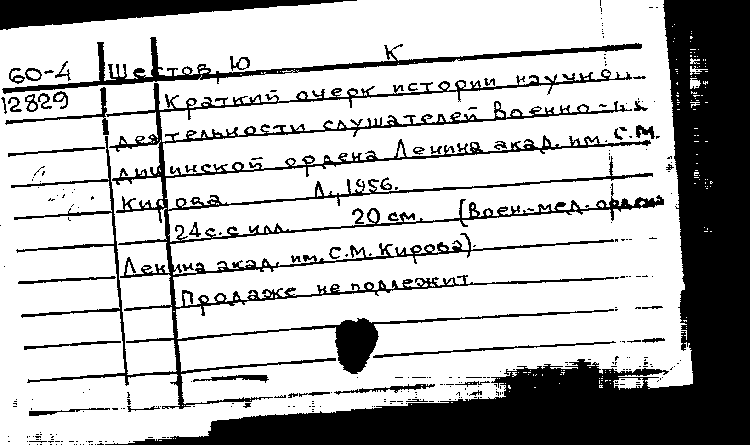 60-4 Шестов, Ю К
12829 Краткий очерк истории научной
деятельности слушателей Военно-
дицинской ордена Ленина акад. им. С.М.
Кирова. Л., 1956.
24 с. с илл. 20 см. (Воен.-мед. ордена
Ленина акад. им. С.М. Кирова).
Продаже не подлежит.